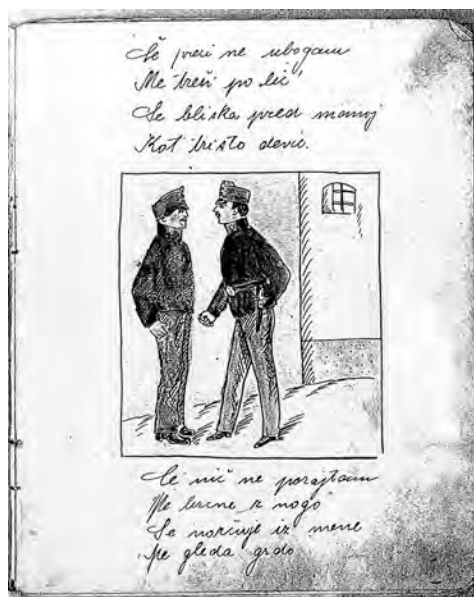 Če preci ne ubogam
Me treši po lic'
Se bliska pred manoj
Kot tristo devic.
Če nič ne porajtam
Me brcne z nogo
Se norčuje iz mene
Me gleda grdo